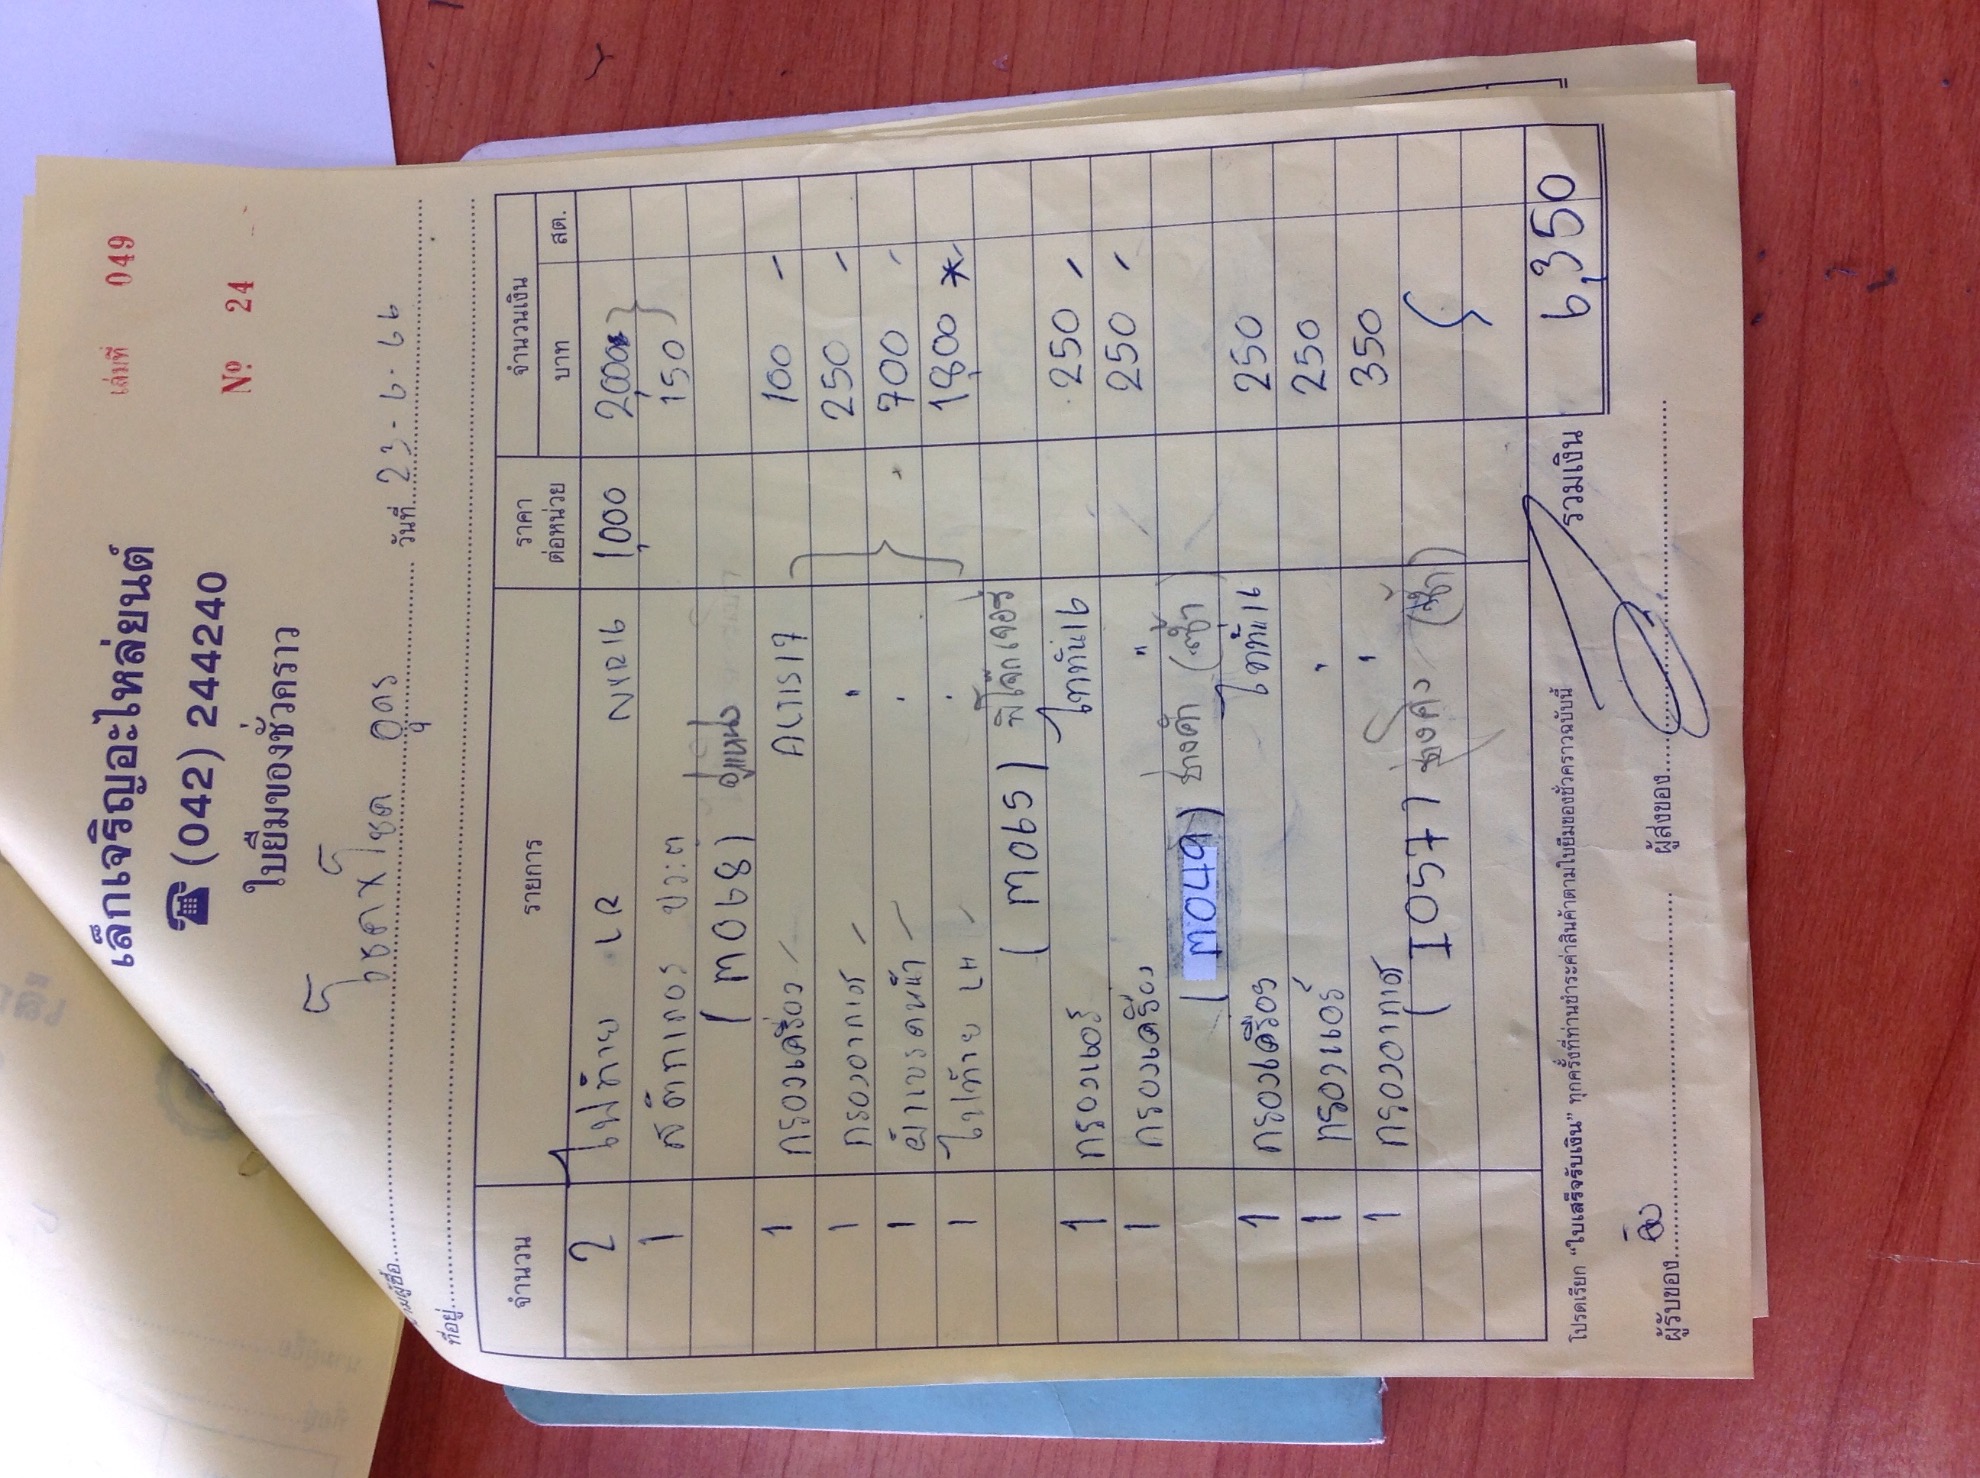 เล่มที่ 049
เล็กเจริญอะไหล่ยนต์
☎ (042) 244240
Nº 24
ใบยืมของชั่วคราว
วันที่ 23-6-66
ที่อยู่
จำนวน รายการ ราคาต่อหน่วย จำนวนเงิน
บาท สต.
2 ไฟท้าย LR 1,000 2,000
1 150
( M068 )
1 กรองเครื่อง ALTIS 17 100 -
1 กรองอากาศ " 250 -
1 ผ้าเบรคหน้า " 700 -
1 ไฟท้าย LH " 1,800 *
( M065 )
1 กรองแอร์ ไททัน 16 250 -
1 กรองเครื่อง " 250 -
( M049 ) ช่างคำ (ซ้ำ)
1 กรองเครื่อง ไททัน 16 250
1 กรองแอร์ " 250
1 กรองอากาศ " 350
( I057 ) (ซ้ำ)
รวมเงิน 6,350
โปรดเรียก "ใบเสร็จรับเงิน" ทุกครั้งที่ท่านชำระค่าสินค้าตามใบยืมของชั่วคราวฉบับนี้
ผู้รับของ ผู้ส่งของ